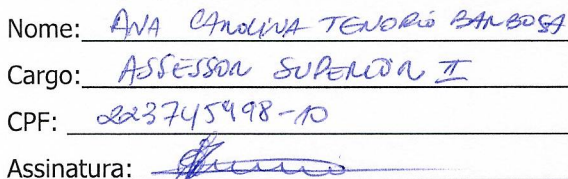 Nome: ANA CAROLINA TENORIO BARBOSA
Cargo: ASSESSOR SUPERIOR II
CPF: 223745498-10
Assinatura: